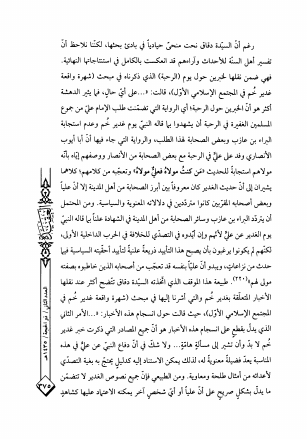 رغم أنّ السيّدة دقاق نحت منحىً حيادياً في بادئ بحثها، لكنّنا نلاحظ أنّ
تفسير أهل السنّة للأحداث وآراءهم قد انعكست بالكامل في استنتاجاتها النهائية.
فهي ضمن نقلها لخبرين حول يوم (الرحبة) الذي ذكرناه في مبحث (شهرة واقعة
غدير خُم في المجتمع الإسلامي الأوّل)، قالت: «...على أيّ حالٍ، فما يثير الدهشة
أكثر هو أنّ الخبرين حول الرحبة؛ أي الرواية التي تضمّنت طلب الإمام عليّ من جموع
المسلمين الغفيرة في الرحبة أن يشهدوا بما قاله النبيّ يوم غدير خُم وعدم استجابة
البراء بن عازب وبعض الصحابة لهذا الطلب، والرواية التي جاء فيها أنّ أبا أيوب
الأنصاري وفد على عليٍّ في الرحبة مع بعض الصحابة من الأنصار ووصفهم إيّاه بأنّه
مولاهم استجابةً للحديث «مَن كنتُ مولاهُ فعليٌّ مولاه» وتعجّبه من كلامهم؛ كلاهما
يشيران إلى أنّ حديث الغدير كان معروفاً بين أبرز الصحابة من أهل المدينة إلا أنّ علياً
وبعض أصحابه المقرّبين كانوا متردّدين في دلالاته المعنوية والسياسية. ومن المحتمل
أن يتردّد البراء بن عازب وسائر الصحابة من أهل المدينة في الشهادة علناً بما قاله النبي
يوم الغدير عن عليٍّ لأنّهم وإن أيّدوه في التصدّي للخلافة في الحرب الداخلية الأولى،
لكنّهم لم يكونوا يرغبون بأن يصبح هذا التأييد ذريعةً علنيةً لتأييد أحقّيته السياسية فيما
حدث من نزاعاتٍ، ويبدو أنّ علياً بنفسه قد تعجّب من أصحابه الذين خاطبوه بصفته
مولى لهم»(٢٢٠). طبيعة هذا الموقف الذي اتّخذته السيّدة دقاق تتّضح أكثر عند نقلها
الأخبار المتعلّقة بغدير خُم والتي أشرنا إليها في مبحث (شهرة واقعة غدير خُم في
المجتمع الإسلامي الأوّل)، حيث قالت حول انسجام هذه الأخبار: «...الأمر الثاني
الذي يدلّ بقطعٍ على انسجام هذه الأخبار هو أنّ جميع المصادر التي ذكرت خبر غدير
خُم لا بدّ وأن تشير إلى مسألةٍ هامّةٍ... ولا شكّ في أنّ دفاع النبيّ عن عليٍّ في هذه
المناسبة يعدّ فضيلةً معنويةً له، لذلك يمكن الاستناد إليه كدليلٍ يحتجّ به بغية التصدّي
لأعدائه من أمثال طلحة ومعاوية. ومن الطبيعي فإنّ جميع نصوص الغدير لا تتضمّن
ما يدلّ بشكلٍ صريحٍ على أنّ علياً أو أيّ شخصٍ آخر يمكنه الاعتماد عليها كشاهدٍ
العدد الثاني / ذو الحجة / ١٤٣٥هـ
٣٧٥